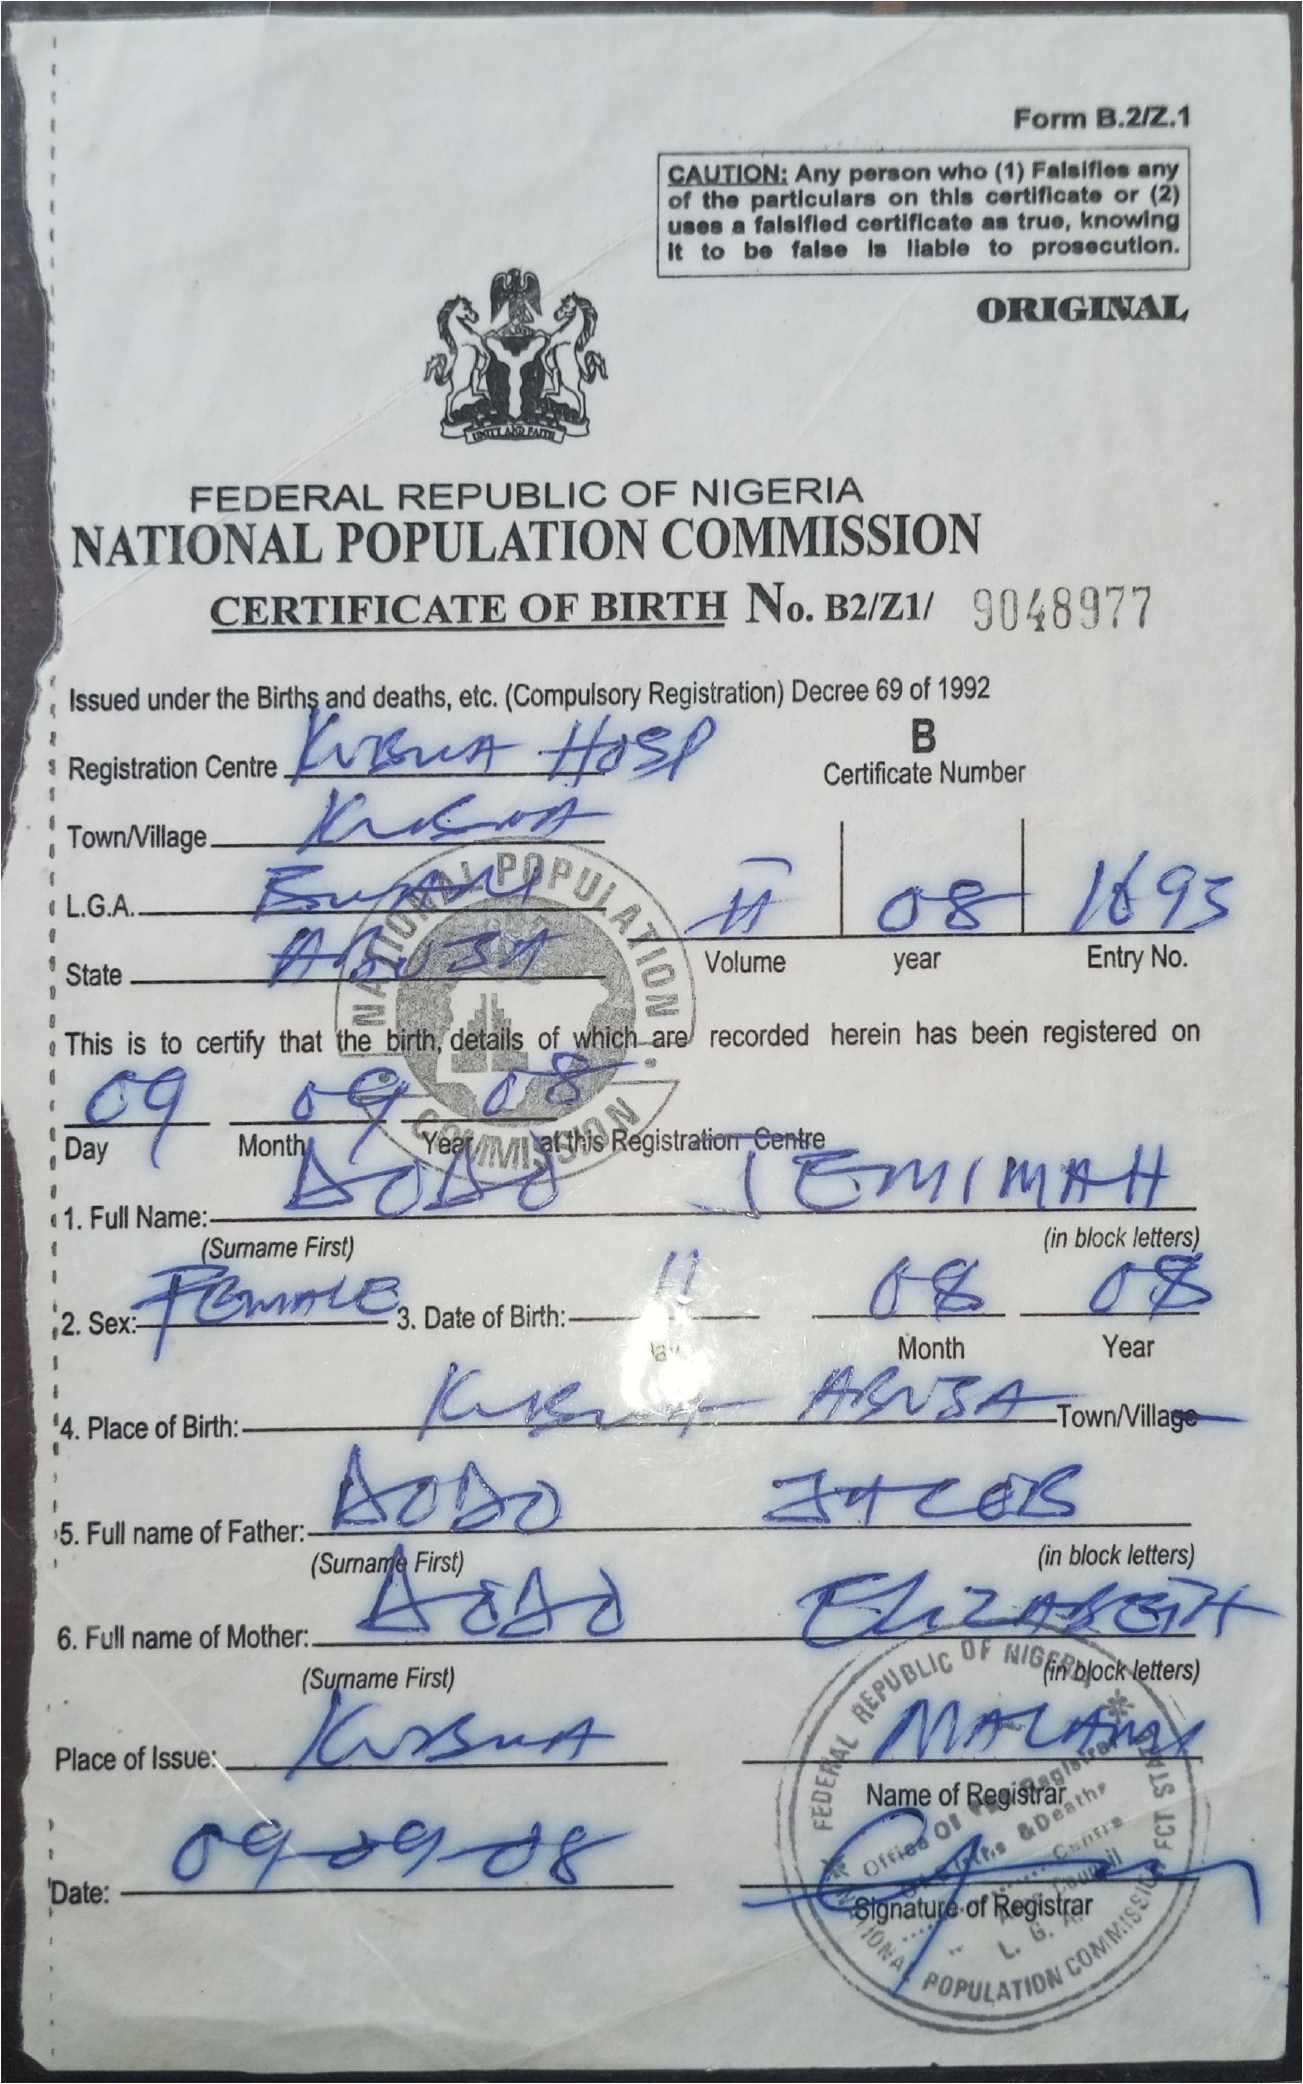 Form B.2/Z.1
CAUTION: Any person who (1) Falsifies any
of the particulars on this certificate or (2)
uses a falsified certificate as true, knowing
it to be false is liable to prosecution.
ORIGINAL
UNITY AND FAITH
FEDERAL REPUBLIC OF NIGERIA
NATIONAL POPULATION COMMISSION
CERTIFICATE OF BIRTH No. B2/Z1/ 9048977
Issued under the Births and deaths, etc. (Compulsory Registration) Decree 69 of 1992
Registration Centre KUBWA HOSP
B
Certificate Number
Town/Village KUBWA
L.G.A. BWARI
State ABUJA
II 08 1693
Volume year Entry No.
NATIONAL POPULATION COMMISSION
This is to certify that the birth, details of which are recorded herein has been registered on
09 09 08
Day Month Year at this Registration Centre
1. Full Name: DODO JEMIMAH
(Surname First) (in block letters)
2. Sex: FEMALE 3. Date of Birth: 11 08 08
Month Year
4. Place of Birth: KUBWA ABUJA Town/Village
5. Full name of Father: DODO JACOB
(Surname First) (in block letters)
6. Full name of Mother: DODO ELIZABETH
(Surname First) (in block letters)
Place of Issue: KUBWA MALAMI
Name of Registrar
Date: 09-09-08
Signature of Registrar
FEDERAL REPUBLIC OF NIGERIA
NATIONAL POPULATION COMMISSION FCT STATE
Office Of The Registrar
Of Births & Deaths
Centre
Area Council
L. G. A.